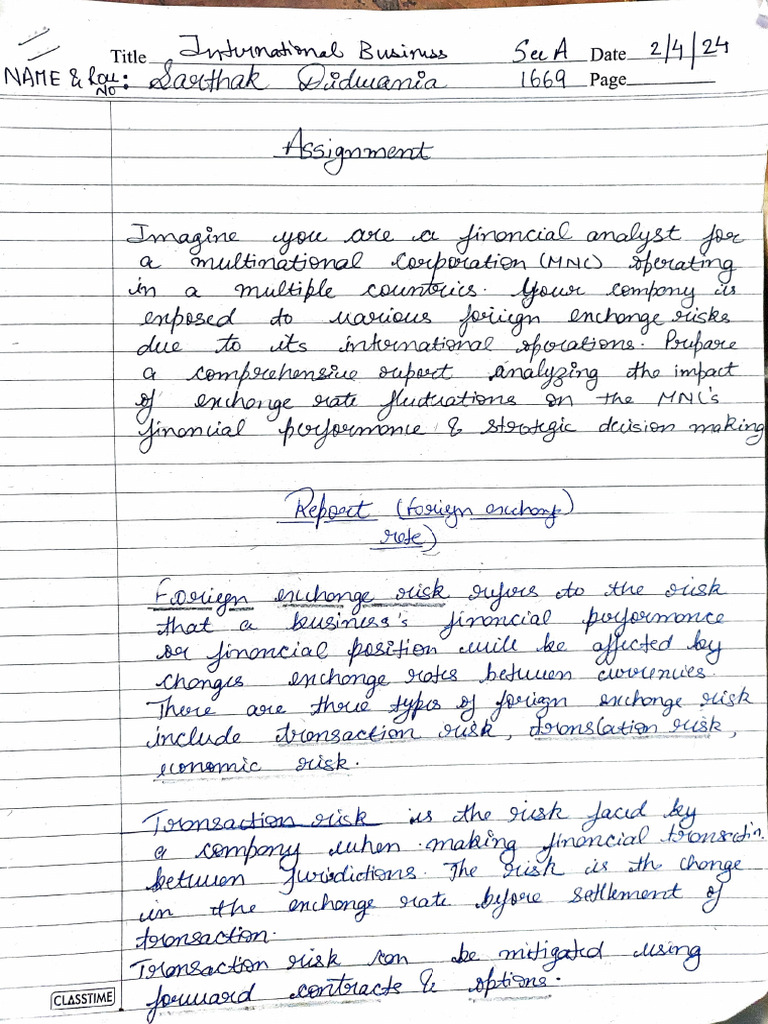 Title International Business Sec A Date 2/4/24
NAME & Roll No: Sarthak Didwania 1669 Page
Assignment
Imagine you are a financial analyst for
a multinational corporation (MNC) operating
in a multiple countries. Your company is
exposed to various foreign exchange risks
due to its international operations. Prepare
a comprehensive report analyzing the impact
of exchange rate fluctuations on the MNC's
financial performance & strategic decision making
Report (foreign exchang
rate)
Foreign exchange risk refers to the risk
that a business's financial performance
or financial position will be affected by
changes exchange rates between currencies.
There are three types of foreign exchange risk
include transaction risk, translation risk,
economic risk.
Transaction risk is the risk faced by
a company when making financial transactin
between Jurisdictions. The risk is th change
in the exchange rate before settlement of
transaction.
Transaction risk can be mitigated using
forward contracts & options.
CLASSTIME